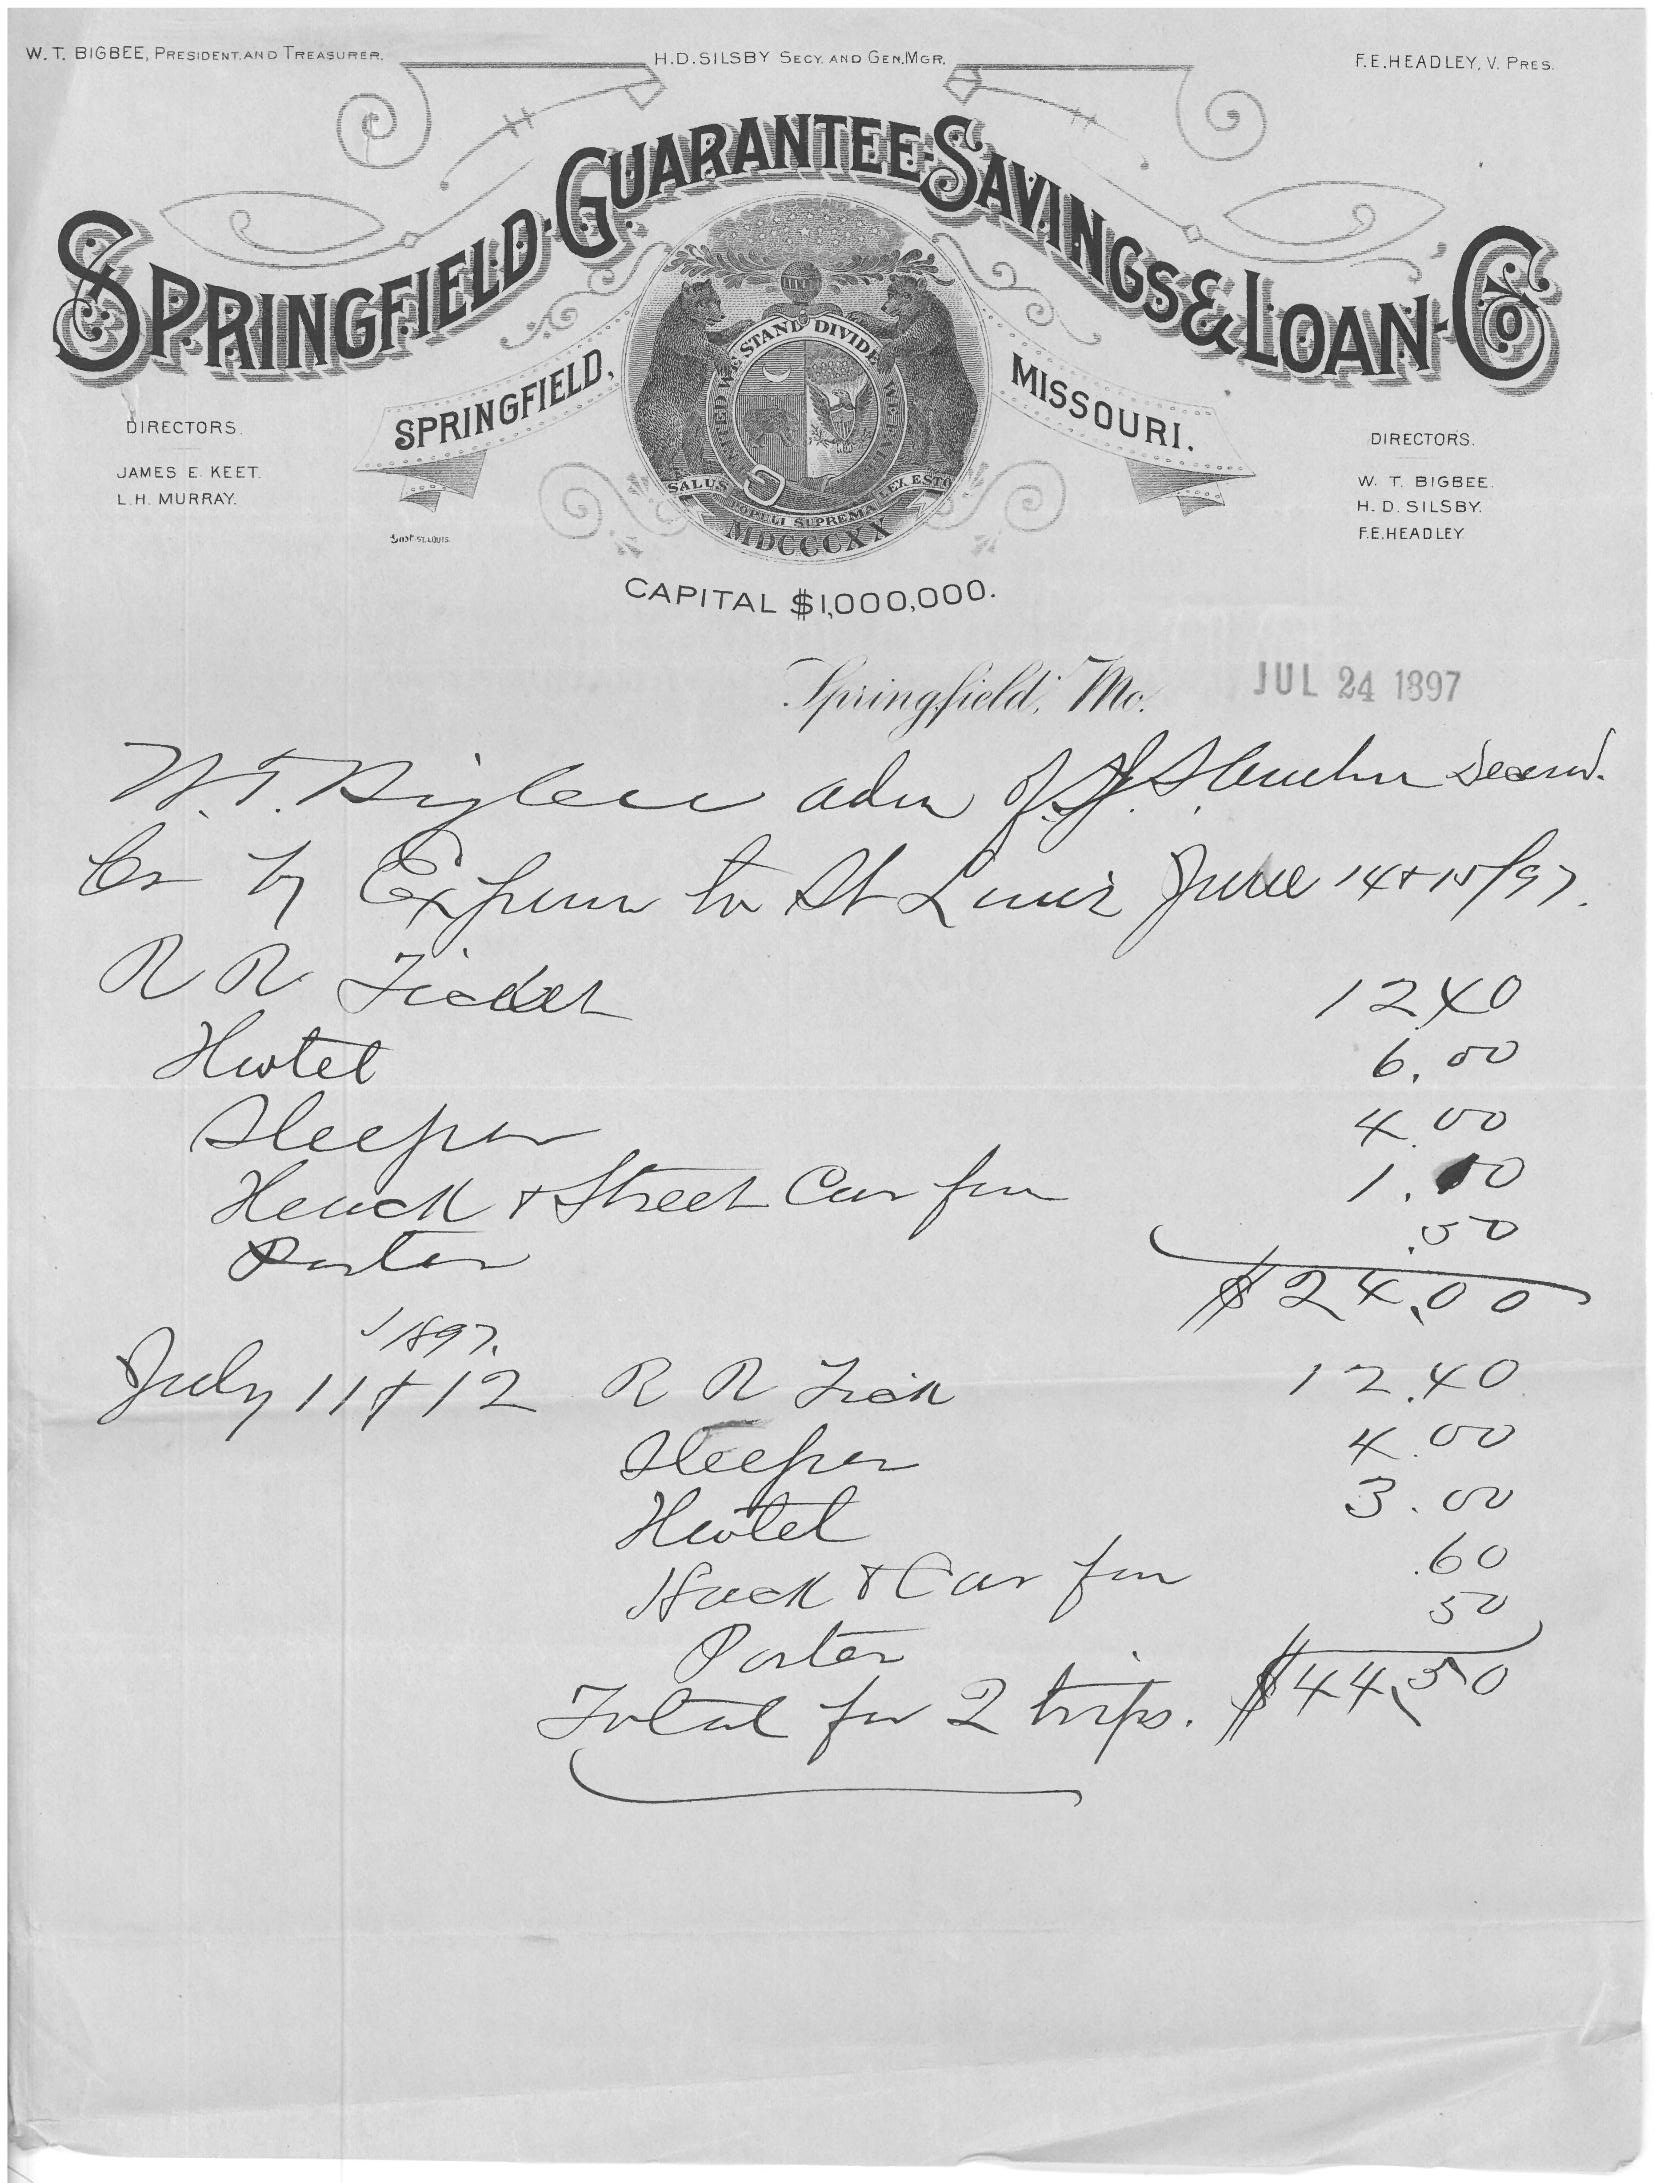 W. T. BIGBEE, PRESIDENT AND TREASURER.
H. D. SILSBY SECY. AND GEN. MGR.
F. E. HEADLEY, V. PRES.
SPRINGFIELD-GUARANTEE-SAVINGS & LOAN-CO
SPRINGFIELD, MISSOURI.
UNITED WE STAND DIVIDED WE FALL
SALUS POPULI SUPREMA LEX ESTO
MDCCCXX
DIRECTORS.
JAMES E. KEET.
L. H. MURRAY.
DIRECTORS.
W. T. BIGBEE.
H. D. SILSBY.
F. E. HEADLEY
ST. LOUIS.
CAPITAL $1,000,000.
Springfield, Mo. JUL 24 1897
W. T. Bigbee adm of
Cr by Expense to St Louis June 14 + 15/97.
R R Ticket 12.40
Hotel 6.00
Sleeper 4.00
Hack + Street Car fare 1.10
Porter .50
$24.00
1897.
July 11 + 12 R R Tick 12.40
Sleeper 4.00
Hotel 3.00
Hack + Car fare .60
Porter 50
Total for 2 trips. $44.50